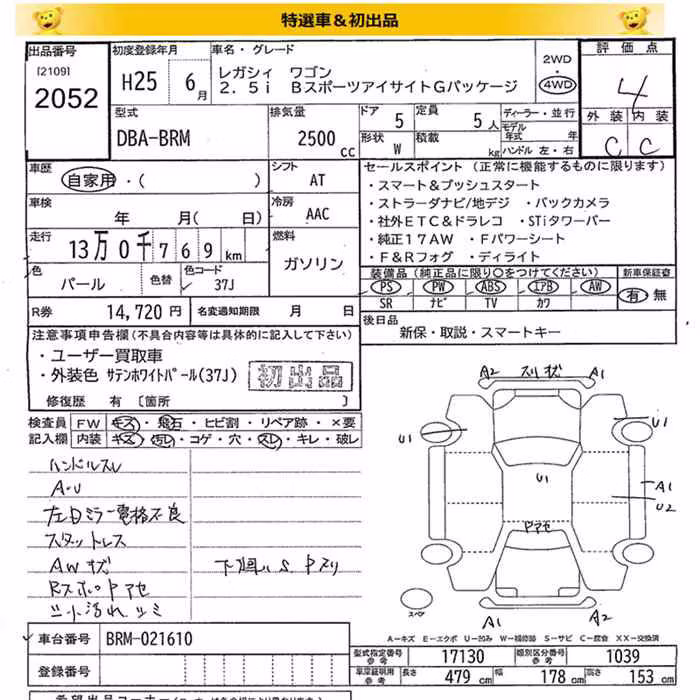 特選車＆初出品
出品番号
[2109]
2052
初度登録年月
H25 6月
車名・グレード
レガシィ ワゴン
2．5i BスポーツアイサイトGパッケージ
2WD
・
4WD
評価点
4
外装 内装
C C
型式
DBA-BRM
排気量
2500 cc
ドア 5
定員 5人
形状 W
積載 kg
ディーラー・並行
モデル年式 年
ハンドル 左・右
車歴
自家用・( )
シフト
AT
車検
年 月( 日)
冷房
AAC
走行
13万0千769km
燃料
ガソリン
色
パール
色替
色コード
37J
R券 14,720円
名変通知期限 月 日
セールスポイント (正常に機能するものに限ります)
・スマート＆プッシュスタート
・ストラーダナビ/地デジ ・バックカメラ
・社外ETC＆ドラレコ ・STiタワーバー
・純正17AW ・Fパワーシート
・F＆Rフォグ ・ディライト
装備品(純正品に限り○をつけてください)
PS PW ABS エアB AW
SR ナビ TV カワ
新車保証書
有 無
後日品
新保・取説・スマートキー
注意事項申告欄(不具合内容等は具体的に記入して下さい)
・ユーザー買取車
・外装色 サテンホワイトパール(37J)
初出品
修復歴 有 [箇所 ]
検査員記入欄
FW キズ・飛石・ヒビ割・リペア跡・×要
内装 キズ・汚レ・コゲ・穴・スレ・キレ・破レ
ハンドルスレ
A・U
左日ミラー電格不良
スタットレス
AWキズ
下廻りS
RスポロアセA
シート汚れ シミ
A2 スリキズ A1
U1 U1
U1
A1
U2
アセ
スペア
A1 A2
A－キズ E－エクボ U－凹み W－補修跡 S－サビ C－腐食 XX－交換済
車台番号 BRM-021610
登録番号
型式指定番号 参考 17130
類別区分番号 参考 1039
車庫証明用 参考 長さ 479cm 幅 178cm 高さ 153cm
希望出品コーナー